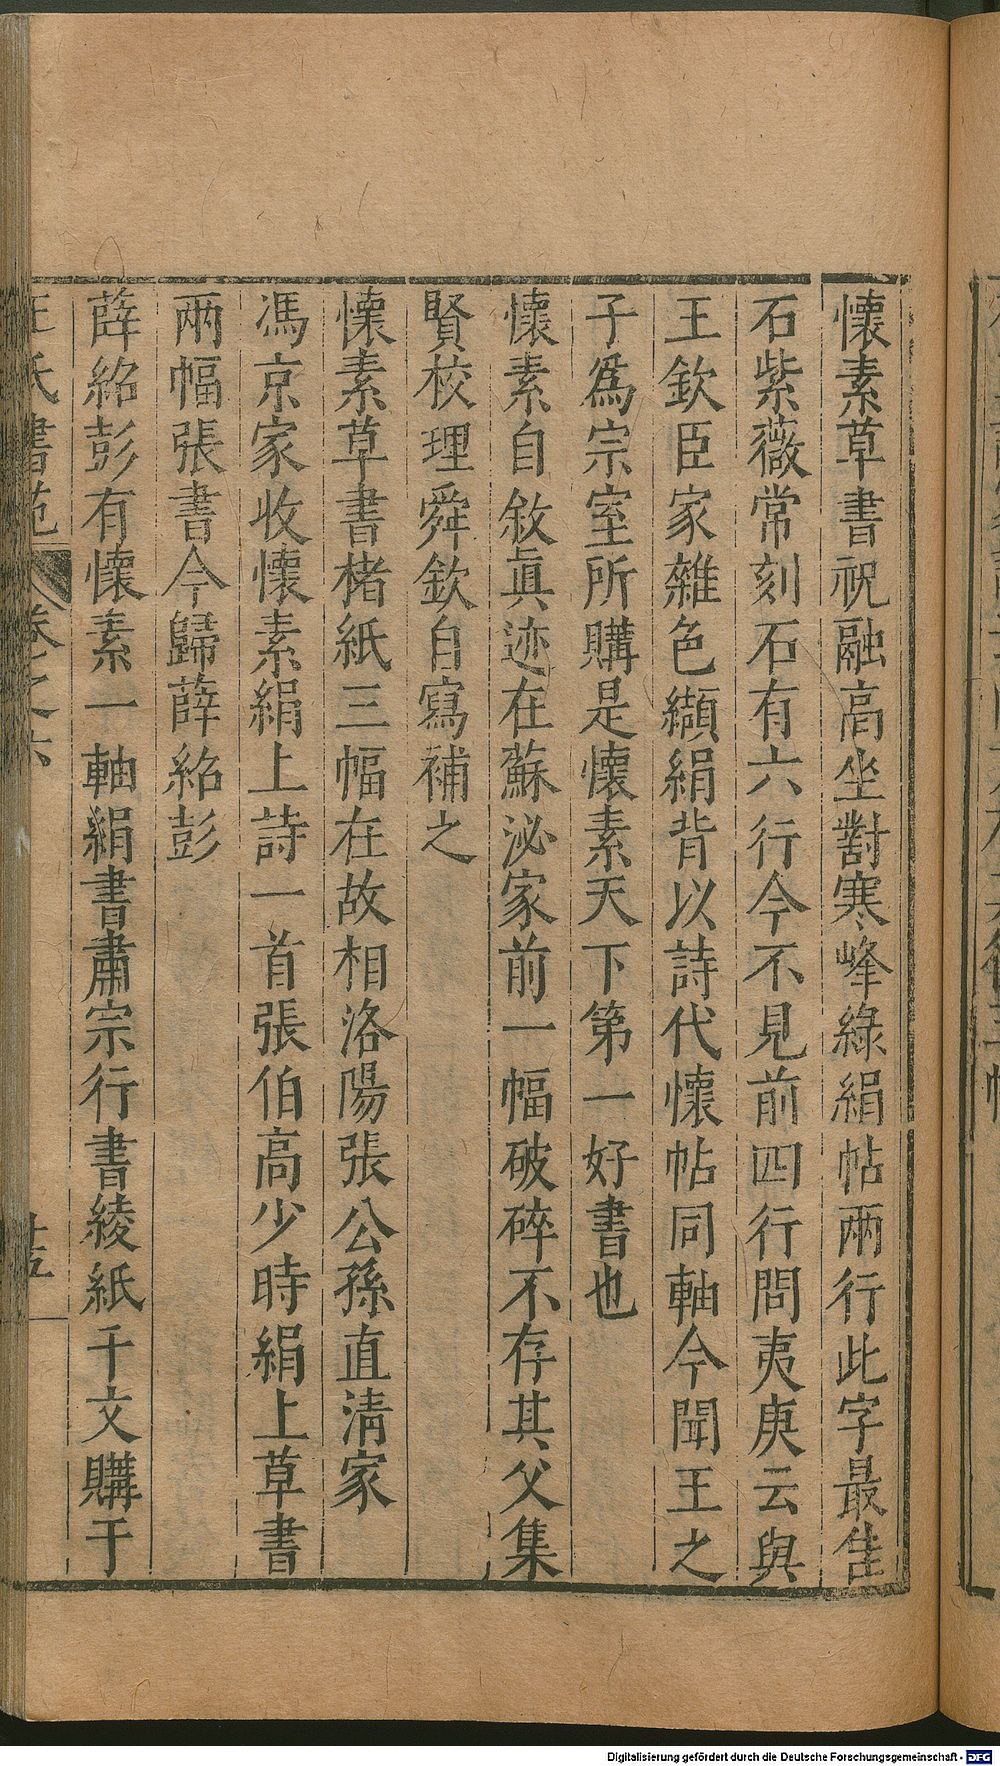 懷素草書祝融高坐對寒峰綠絹帖兩行此字最佳
石紫薇常刻石有六行今不見前四行問夷庚云與
王欽臣家雜色纈絹背以詩代懷帖同軸今聞王之
子爲宗室所購是懷素天下第一好書也
懷素自敘眞迹在蘇泌家前一幅破碎不存其父集
賢校理舜欽自寫補之
懷素草書楮紙三幅在故相洛陽張公孫直清家
馮京家收懷素絹上詩一首張伯高少時絹上草書
兩幅張書今歸薛紹彭
薛紹彭有懷素一軸絹書肅宗行書綾紙千文購于
王氏書苑 卷之六 廿五
Digitalisierung gefördert durch die Deutsche Forschungsgemeinschaft - DFG